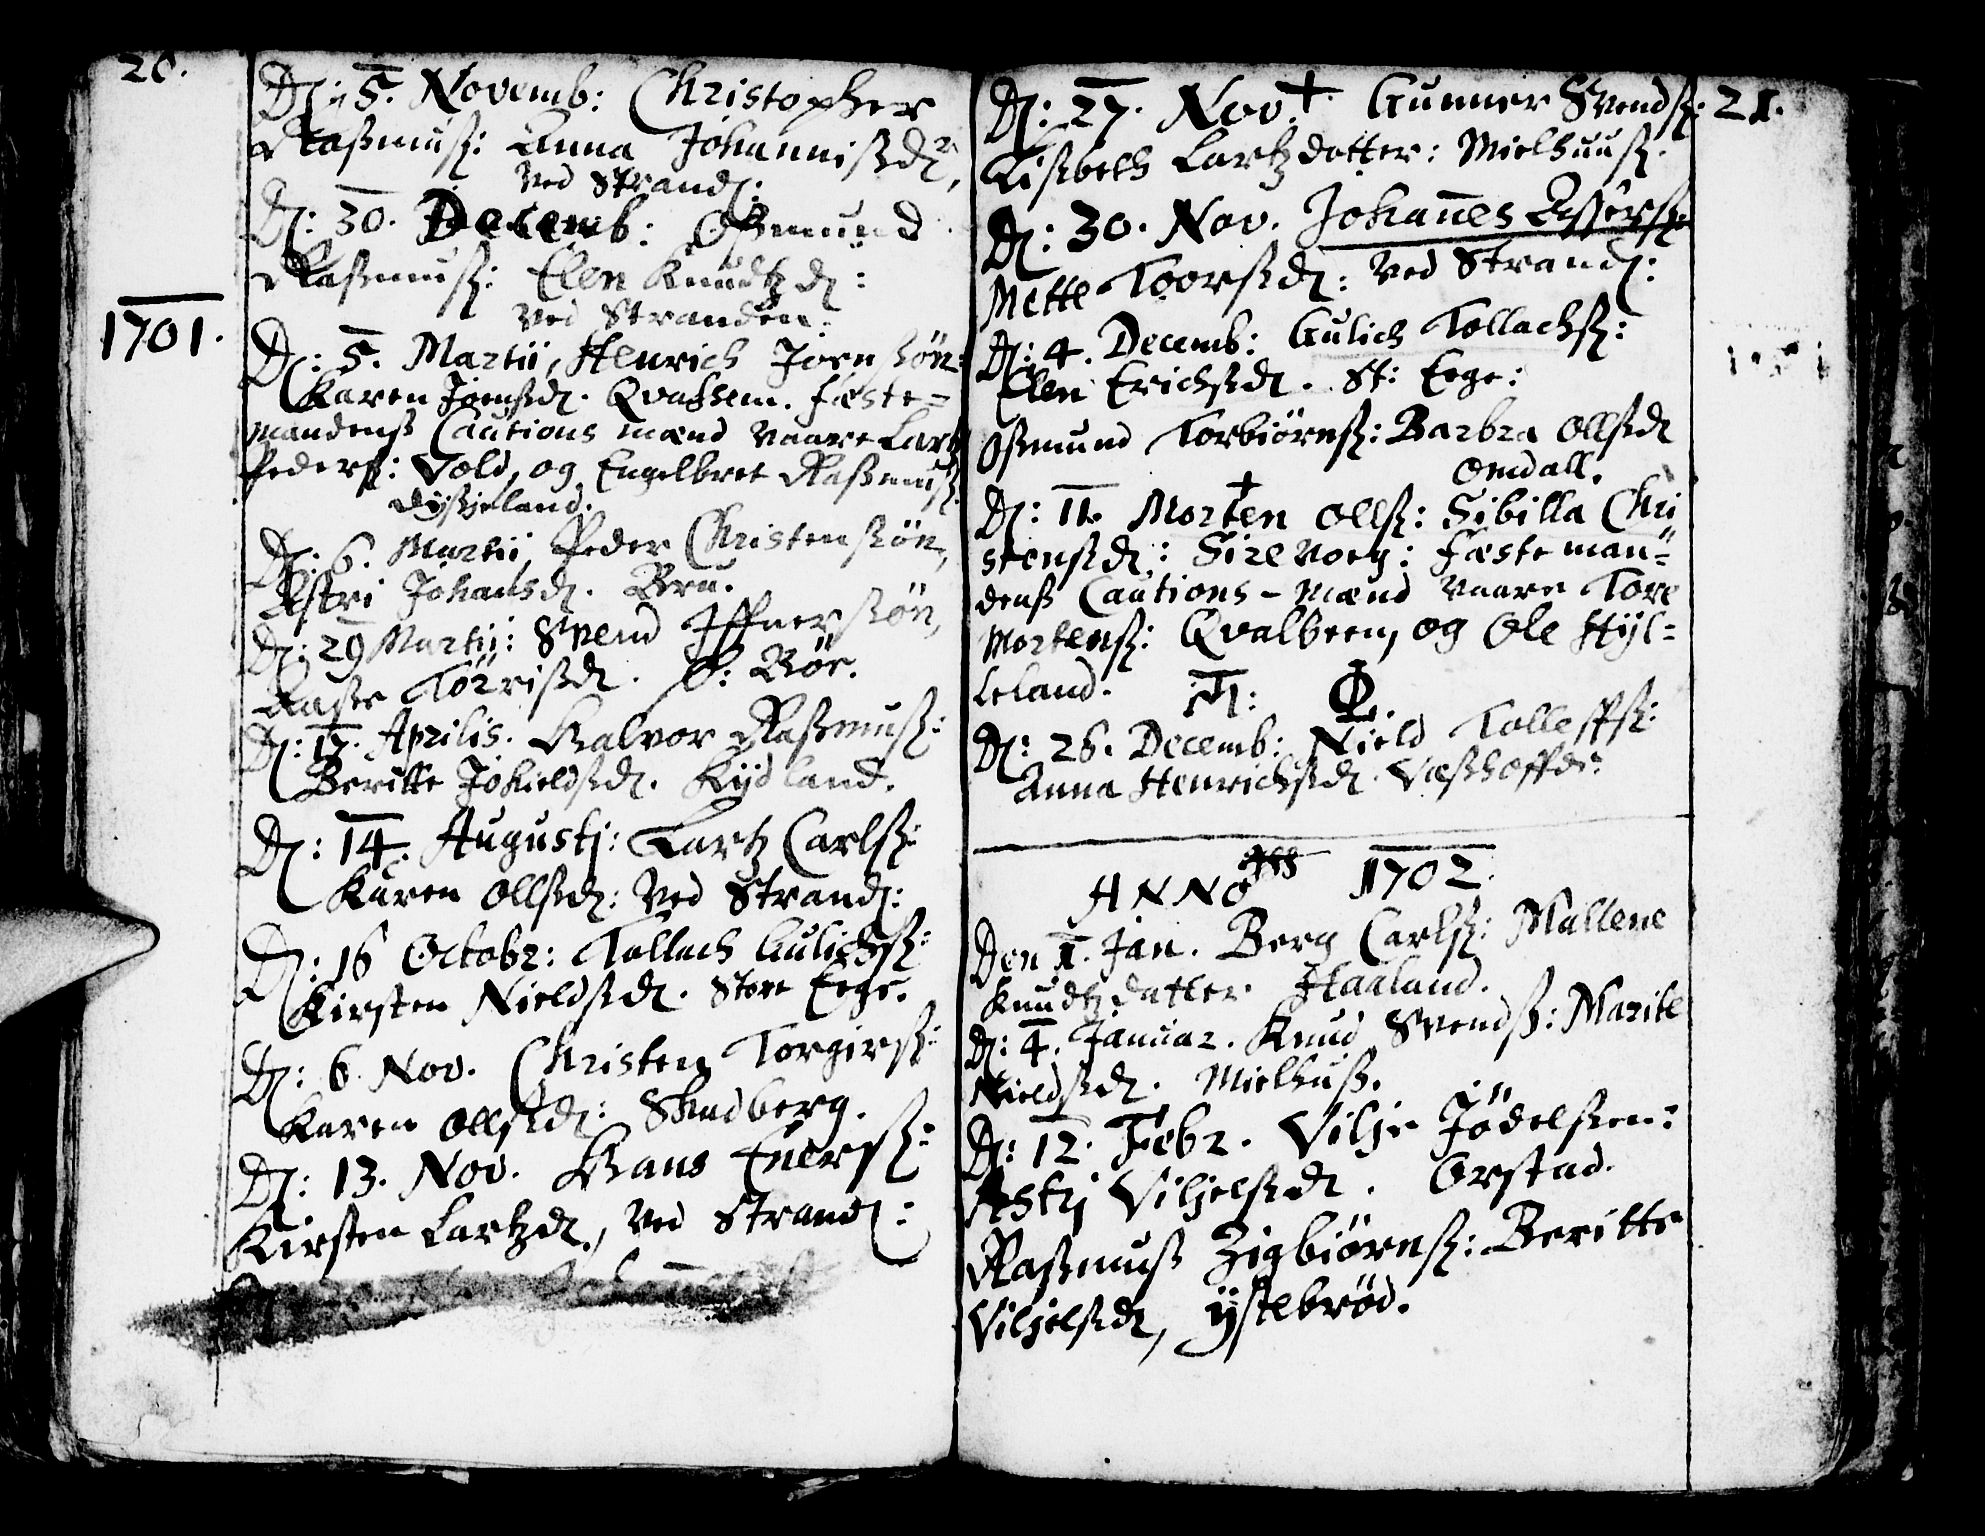 20.
D: 5. Novemb: Christopher
Rasmusß: Anna Johannisßdr,
Ved Strand:
D: 30. Decemb: Osmund
Rasmusß: Elen Knudtzd:
Ved Stranden.
1701.
D: 5. Martii, Henrich Joensøn:
Karen Joensßd. Qvassem. Fæste=
mandens Cautions mænd vaare Lartz
Pederß: Vold, og Engelbret Rasmusß:
Dysjeland.
D: 6. Martii, Peder Christensøn,
Astri Johansd. Bru.
D: 29 Martii: Svend Iffversøn,
Aaste Törrisßd. S: Böe.
D: 17. Aprilis. Halvor Rasmusß:
Beritte Jokieldsßd. Kydland.
D: 14. Augustj: Lartz Carlsß:
Karen Ollsßd: Ved Strand:
D: 16 Octobr: Tollach Gulichsß:
Kirsten Nieldsßd. Store Eege.
D: 6 Nov. Christen Torgirsß:
Karen Ollsßd: Skadberg.
D: 13. Nov. Hans Enersß:
Kirsten Lartzd., Ved Strand:
21.
D: 27. Nov. + Gunner Svendsß:
Lisbeth Lartzdotter: Mielhuusß.
D: 30. Nov. Johanes Assersß:
Mette Toorsßd: Ved Strand:
D: 4. Decemb: Gulich Tollachsß:
Elen Erichsßd. St: Eege:
Osmund Torbiörnsß: Barbra Ollsßd
Omdall.
D: 11. Morten Ollsß: Sibilla Chri
stensßd: Sirevoeg: Fæsteman=
dens Cautions-mænd vaare Tore
Mortensß: Qvalbeen, og Ole Hÿl=
leland.
D: 26. Decemb: Nield Tolleffsß:
Anna Henrichsßd.
ANNO 1702.
Den 1. Jan. Berg Carlsß: Mallene
Knudtzdatter Haaland.
D: 4. Januar. Knud Svendsß: Marite
Nieldsßd. Mielhusß.
D: 12. Febr. Vilje Jödelsßen:
Astrj Viljelsßd. Orstad.
Rasmusß Zigbiörnsß: Beritte
Viljelsßd, ÿstebröd.